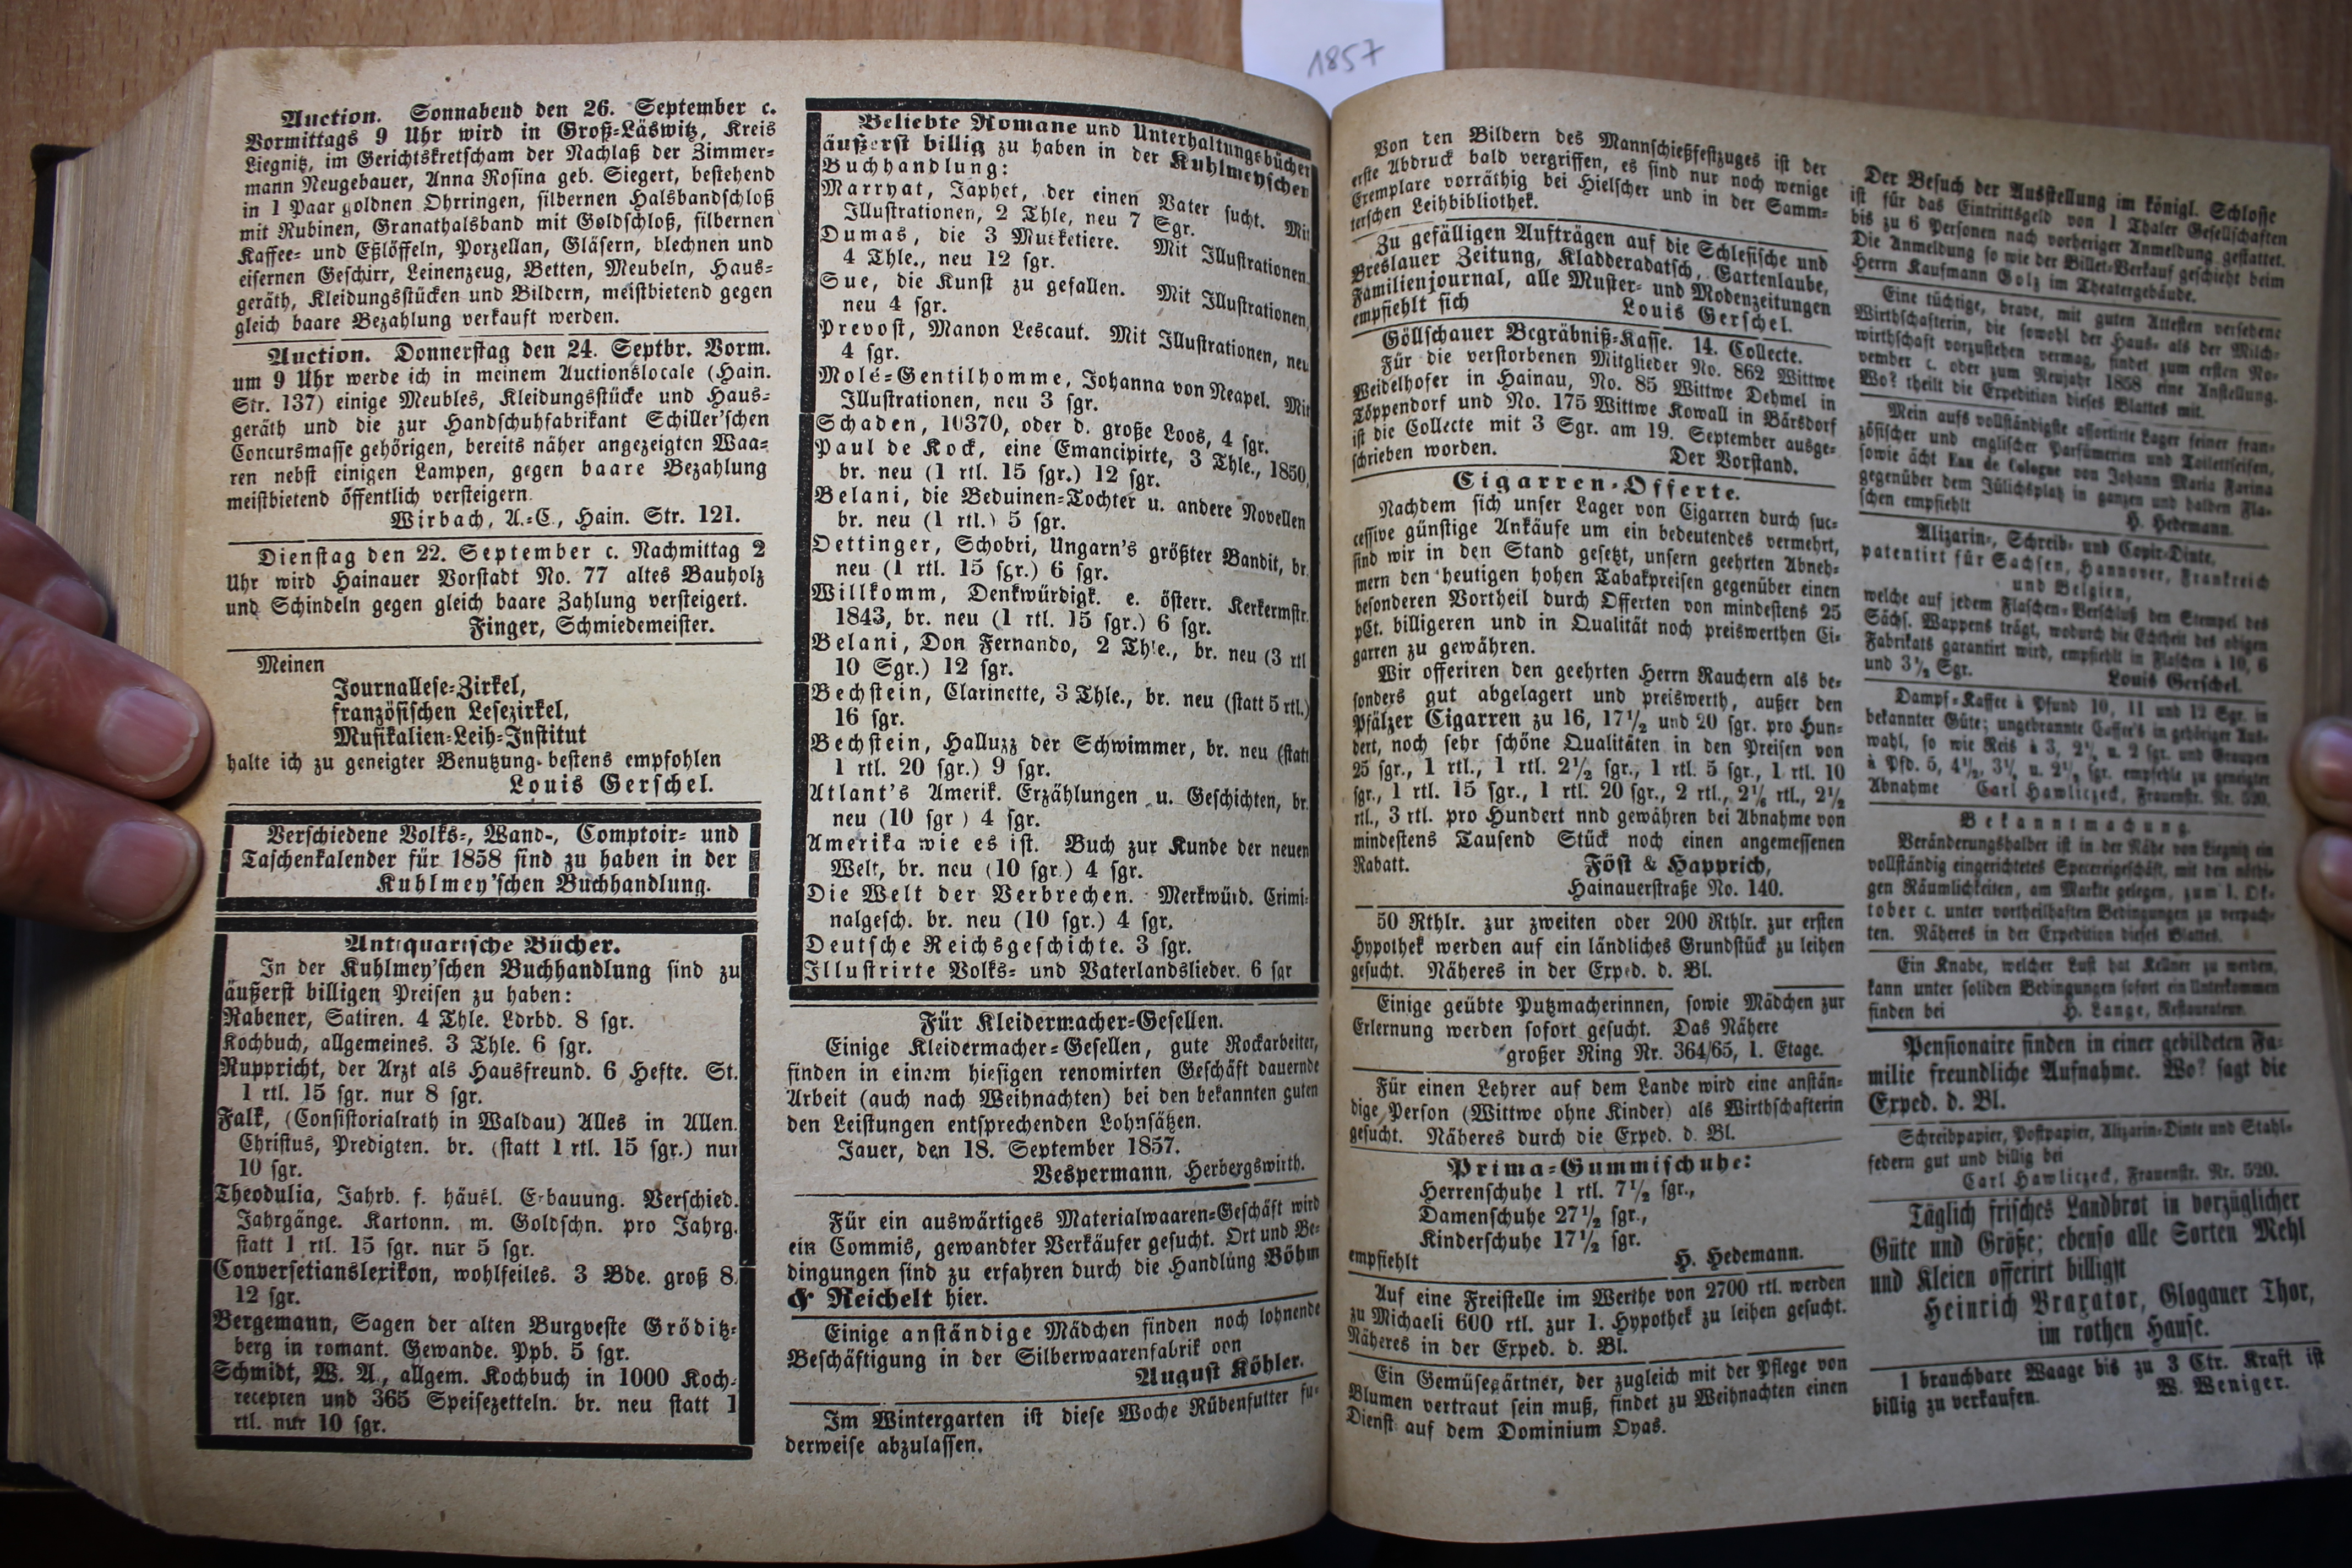 1857
Auction. Sonnabend den 26. September c.
Vormittags 9 Uhr wird in Groß-Läswitz, Kreis
Liegnitz, im Gerichtskretscham der Nachlaß der Zimmer-
mann Neugebauer, Anna Rosina geb. Siegert, bestehend
in 1 Paar goldnen Ohrringen, silbernen Halsbandschloß
mit Rubinen, Granathalsband mit Goldschloß, silbernen
Kaffee- und Eßlöffeln, Porzellan, Gläsern, blechnen und
eisernen Geschirr, Leinenzeug, Betten, Meubeln, Haus-
geräth, Kleidungsstücken und Bildern, meistbietend gegen
gleich baare Bezahlung verkauft werden.
Auction. Donnerstag den 24. Septbr. Vorm.
um 9 Uhr werde ich in meinem Auctionslocale (Hain.
Str. 137) einige Meubles, Kleidungsstücke und Haus-
geräth und die zur Handschuhfabrikant Schiller'schen
Concursmasse gehörigen, bereits näher angezeigten Waa-
ren nebst einigen Lampen, gegen baare Bezahlung
meistbietend öffentlich versteigern.
Wirbach, A.-C., Hain. Str. 121.
Dienstag den 22. September c. Nachmittag 2
Uhr wird Hainauer Vorstadt No. 77 altes Bauholz
und Schindeln gegen gleich baare Zahlung versteigert.
Finger, Schmiedemeister.
Meinen
Journallese-Zirkel,
französischen Lesezirkel,
Musikalien-Leih-Institut
halte ich zu geneigter Benutzung bestens empfohlen
Louis Gerschel.
Verschiedene Volks-, Wand-, Comptoir- und
Taschenkalender für 1858 sind zu haben in der
Kuhlmey'schen Buchhandlung.
Antiquarische Bücher.
In der Kuhlmey'schen Buchhandlung sind zu
äußerst billigen Preisen zu haben:
Rabener, Satiren. 4 Thle. Ldrbd. 8 sgr.
Kochbuch, allgemeines. 3 Thle. 6 sgr.
Ruppricht, der Arzt als Hausfreund. 6 Hefte. St.
1 rtl. 15 sgr. nur 8 sgr.
Falk, (Consistorialrath in Waldau) Alles in Allen.
Christus, Predigten. br. (statt 1 rtl. 15 sgr.) nur
10 sgr.
Theodulia, Jahrb. f. häusl. Erbauung. Verschied.
Jahrgänge. Kartonn. m. Goldschn. pro Jahrg.
statt 1 rtl. 15 sgr. nur 5 sgr.
Conversetianslexikon, wohlfeiles. 3 Bde. groß 8.
12 sgr.
Bergemann, Sagen der alten Burgveste Gröditz-
berg in romant. Gewande. Ppb. 5 sgr.
Schmidt, W. A., allgem. Kochbuch in 1000 Koch-
recepten und 365 Speisezetteln. br. neu statt 1
rtl. nur 10 sgr.
Beliebte Romane und Unterhaltungsbücher
äußerst billig zu haben in der Kuhlmeyschen
Buchhandlung:
Marryat, Japhet, der einen Vater sucht. Mit
Illustrationen, 2 Thle, neu 7 Sgr.
Dumas, die 3 Musketiere. Mit Illustrationen,
4 Thle., neu 12 sgr.
Sue, die Kunst zu gefallen. Mit Illustrationen,
neu 4 sgr.
Prevost, Manon Lescaut. Mit Illustrationen, neu
4 sgr.
Molé-Gentilhomme, Johanna von Neapel. Mit
Illustrationen, neu 3 sgr.
Schaden, 10370, oder d. große Loos, 4 sgr.
Paul de Kock, eine Emancipirte, 3 Thle., 1850,
br. neu (1 rtl. 15 sgr.) 12 sgr.
Belani, die Beduinen-Tochter u. andere Novellen
br. neu (1 rtl.) 5 sgr.
Oettinger, Schobri, Ungarn's größter Bandit, br.
neu (1 rtl. 15 sgr.) 6 sgr.
Willkomm, Denkwürdigk. e. österr. Kerkermstr.
1843, br. neu (1 rtl. 15 sgr.) 6 sgr.
Belani, Don Fernando, 2 Thle., br. neu (3 rtl
10 Sgr.) 12 sgr.
Bechstein, Clarinette, 3 Thle., br. neu (statt 5 rtl.)
16 sgr.
Bechstein, Halluzz der Schwimmer, br. neu (statt
1 rtl. 20 sgr.) 9 sgr.
Atlant's Amerik. Erzählungen u. Geschichten, br.
neu (10 sgr.) 4 sgr.
Amerika wie es ist. Buch zur Kunde der neuen
Welt, br. neu (10 sgr.) 4 sgr.
Die Welt der Verbrechen. Merkwürd. Crimi-
nalgesch. br. neu (10 sgr.) 4 sgr.
Deutsche Reichsgeschichte. 3 sgr.
Illustrirte Volks- und Vaterlandslieder. 6 sgr
Für Kleidermacher-Gesellen.
Einige Kleidermacher-Gesellen, gute Rockarbeiter,
finden in einem hiesigen renomirten Geschäft dauernde
Arbeit (auch nach Weihnachten) bei den bekannten guten
den Leistungen entsprechenden Lohnsätzen.
Jauer, den 18. September 1857.
Vespermann, Herbergswirth.
Für ein auswärtiges Materialwaaren-Geschäft wird
ein Commis, gewandter Verkäufer gesucht. Ort und Be-
dingungen sind zu erfahren durch die Handlung Böhm
& Reichelt hier.
Einige anständige Mädchen finden noch lohnende
Beschäftigung in der Silberwaarenfabrik von
August Köhler.
Im Wintergarten ist diese Woche Rübenfutter fu-
derweise abzulassen.
Von den Bildern des Mannschießfestzuges ist der
erste Abdruck bald vergriffen, es sind nur noch wenige
Exemplare vorräthig bei Hielscher und in der Samm-
terschen Leihbibliothek.
Zu gefälligen Aufträgen auf die Schlesische und
Breslauer Zeitung, Kladderadatsch, Gartenlaube,
Familienjournal, alle Muster- und Modenzeitungen
empfiehlt sich Louis Gerschel.
Göllschauer Begräbniß-Kasse. 14. Collecte.
Für die verstorbenen Mitglieder No. 862 Wittwe
Weidelhofer in Hainau, No. 85 Wittwe Dehmel in
Töppendorf und No. 175 Wittwe Kowall in Bärsdorf
ist die Collecte mit 3 Sgr. am 19. September ausge-
schrieben worden. Der Vorstand.
Cigarren-Offerte.
Nachdem sich unser Lager von Cigarren durch suc-
cessive günstige Ankäufe um ein bedeutendes vermehrt,
sind wir in den Stand gesetzt, unsern geehrten Abneh-
mern den heutigen hohen Tabakpreisen gegenüber einen
besonderen Vortheil durch Offerten von mindestens 25
pCt. billigeren und in Qualität noch preiswerthen Ci-
garren zu gewähren.
Wir offeriren den geehrten Herrn Rauchern als be-
sonders gut abgelagert und preiswerth, außer den
Pfälzer Cigarren zu 16, 17½ und 20 sgr. pro Hun-
dert, noch sehr schöne Qualitäten in den Preisen von
25 sgr., 1 rtl., 1 rtl. 2½ sgr., 1 rtl. 5 sgr., 1 rtl. 10
sgr., 1 rtl. 15 sgr., 1 rtl. 20 sgr., 2 rtl., 2⅙ rtl., 2½
rtl., 3 rtl. pro Hundert nnd gewähren bei Abnahme von
mindestens Tausend Stück noch einen angemessenen
Rabatt. Föst & Happrich,
Hainauerstraße No. 140.
50 Rthlr. zur zweiten oder 200 Rthlr. zur ersten
Hypothek werden auf ein ländliches Grundstück zu leihen
gesucht. Näheres in der Exped. d. Bl.
Einige geübte Putzmacherinnen, sowie Mädchen zur
Erlernung werden sofort gesucht. Das Nähere
großer Ring Nr. 364/65, 1. Etage.
Für einen Lehrer auf dem Lande wird eine anstän-
dige Person (Wittwe ohne Kinder) als Wirthschafterin
gesucht. Näheres durch die Exped. d. Bl.
Prima-Gummischuhe:
Herrenschuhe 1 rtl. 7½ sgr.,
Damenschuhe 27½ sgr.,
Kinderschuhe 17½ sgr.
empfiehlt H. Hedemann.
Auf eine Freistelle im Werthe von 2700 rtl. werden
zu Michaeli 600 rtl. zur 1. Hypothek zu leihen gesucht.
Näheres in der Exped. d. Bl.
Ein Gemüsegärtner, der zugleich mit der Pflege von
Blumen vertraut sein muß, findet zu Weihnachten einen
Dienst auf dem Dominium Oyas.
Der Besuch der Ausstellung im königl. Schlosse
ist für das Eintrittsgeld von 1 Thaler Gesellschaften
bis zu 6 Personen nach vorheriger Anmeldung gestattet.
Die Anmeldung so wie der Billet-Verkauf geschieht beim
Herrn Kaufmann Golz im Theatergebäude.
Eine tüchtige, brave, mit guten Attesten versehene
Wirthschafterin, die sowohl der Haus- als der Milch-
wirthschaft vorzustehen vermag, findet zum ersten No-
vember c. oder zum Neujahr 1858 eine Anstellung.
Wo? theilt die Expedition dieses Blattes mit.
Mein aufs vollständigste assortirte Lager feiner fran-
zösischer und englischer Parfümerien und Toilettseifen,
sowie ächt Eau de Cologne von Johann Maria Farina
gegenüber dem Jülichsplatz in ganzen und halben Fla-
schen empfiehlt H. Hedemann.
Alizarin-, Schreib- und Copir-Dinte,
patentirt für Sachsen, Hannover, Frankreich
und Belgien,
welche auf jedem Flaschen-Verschluß den Stempel des
Sächs. Wappens trägt, wodurch die Echtheit des obigen
Fabrikats garantirt wird, empfiehlt in Flaschen à 10, 6
und 3½ Sgr. Louis Gerschel.
Dampf-Kaffee à Pfund 10, 11 und 12 Sgr. in
bekannter Güte; ungebrannte Caffee's in gehöriger Aus-
wahl, so wie Reis à 3, 2½ u. 2 sgr. und Graupen
à Pfd. 5, 4½, 3½ u. 2½ sgr. empfehle zu geneigter
Abnahme Carl Hawliczeck, Frauenstr. Nr. 520.
Bekanntmachung.
Veränderungshalber ist in der Nähe von Liegnitz ein
vollständig eingerichtetes Specereigeschäft, mit den nöthi-
gen Räumlichkeiten, am Markte gelegen, zum 1. Ok-
tober c. unter vortheilhaften Bedingungen zu verpach-
ten. Näheres in der Expedition dieses Blattes.
Ein Knabe, welcher Lust hat Kellner zu werden,
kann unter soliden Bedingungen sofort ein Unterkommen
finden bei H. Lange, Restaurateur.
Pensionaire finden in einer gebildeten Fa-
milie freundliche Aufnahme. Wo? sagt die
Exped. d. Bl.
Schreibpapier, Postpapier, Alizarin-Dinte und Stahl-
federn gut und billig bei
Carl Hawliczeck, Frauenstr. Nr. 520.
Täglich frisches Landbrot in vorzüglicher
Güte und Größe; ebenso alle Sorten Mehl
und Kleien offerirt billigst
Heinrich Braxator, Glogauer Thor,
im rothen Hause.
1 brauchbare Waage bis zu 3 Ctr. Kraft ist
billig zu verkaufen. W. Weniger.